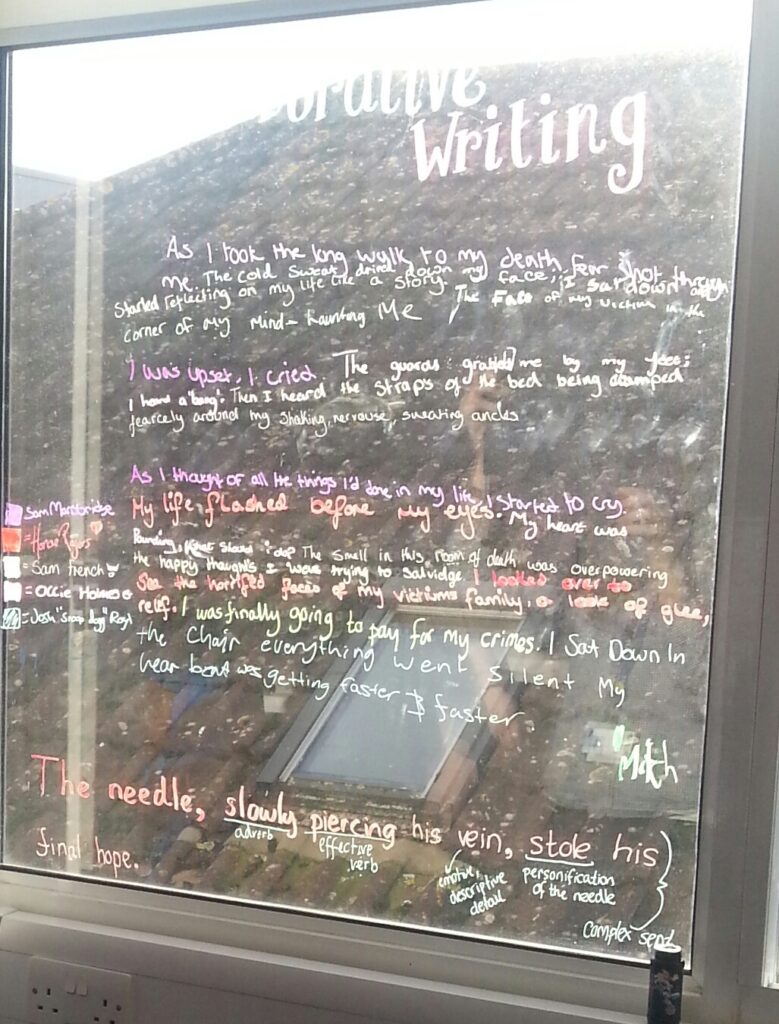 orative
Writing
As I took the long walk to my death fear shot through
me. The cold sweat dried down my face; I sat down and
Started reflecting on my life like a story. The Face of my victim in the
corner of my mind - haunting Me
I was upset, I cried. The guards grabbed me by my feet;
I heard a 'bang'. Then I heard the straps of the bed being clamped
fearcely around my shaking, nervouse, sweating ancles
As I thought of all the things I'd done in my life, I started to cry.
My life flashed before my eyes. My heart was
Pounding, What should i do? The smell in this room of death was overpowering
the happy thoughts I was trying to salvidge. I looked over to
See the horrified faces of my victims family, a look of glee,
relif. I was finally going to pay for my crimes. I Sat Down In
the Chair everything went silent My
hear beat was getting faster & faster.
= Sam
= Honor Rogers
= Sam french
= Ollie Holmes
= Josh "Snoop dogg"
The needle, slowly piercing his vein, stole his
final hope.
adverb
effective verb
emotive, descriptive detail
personification of the needle
Complex sent